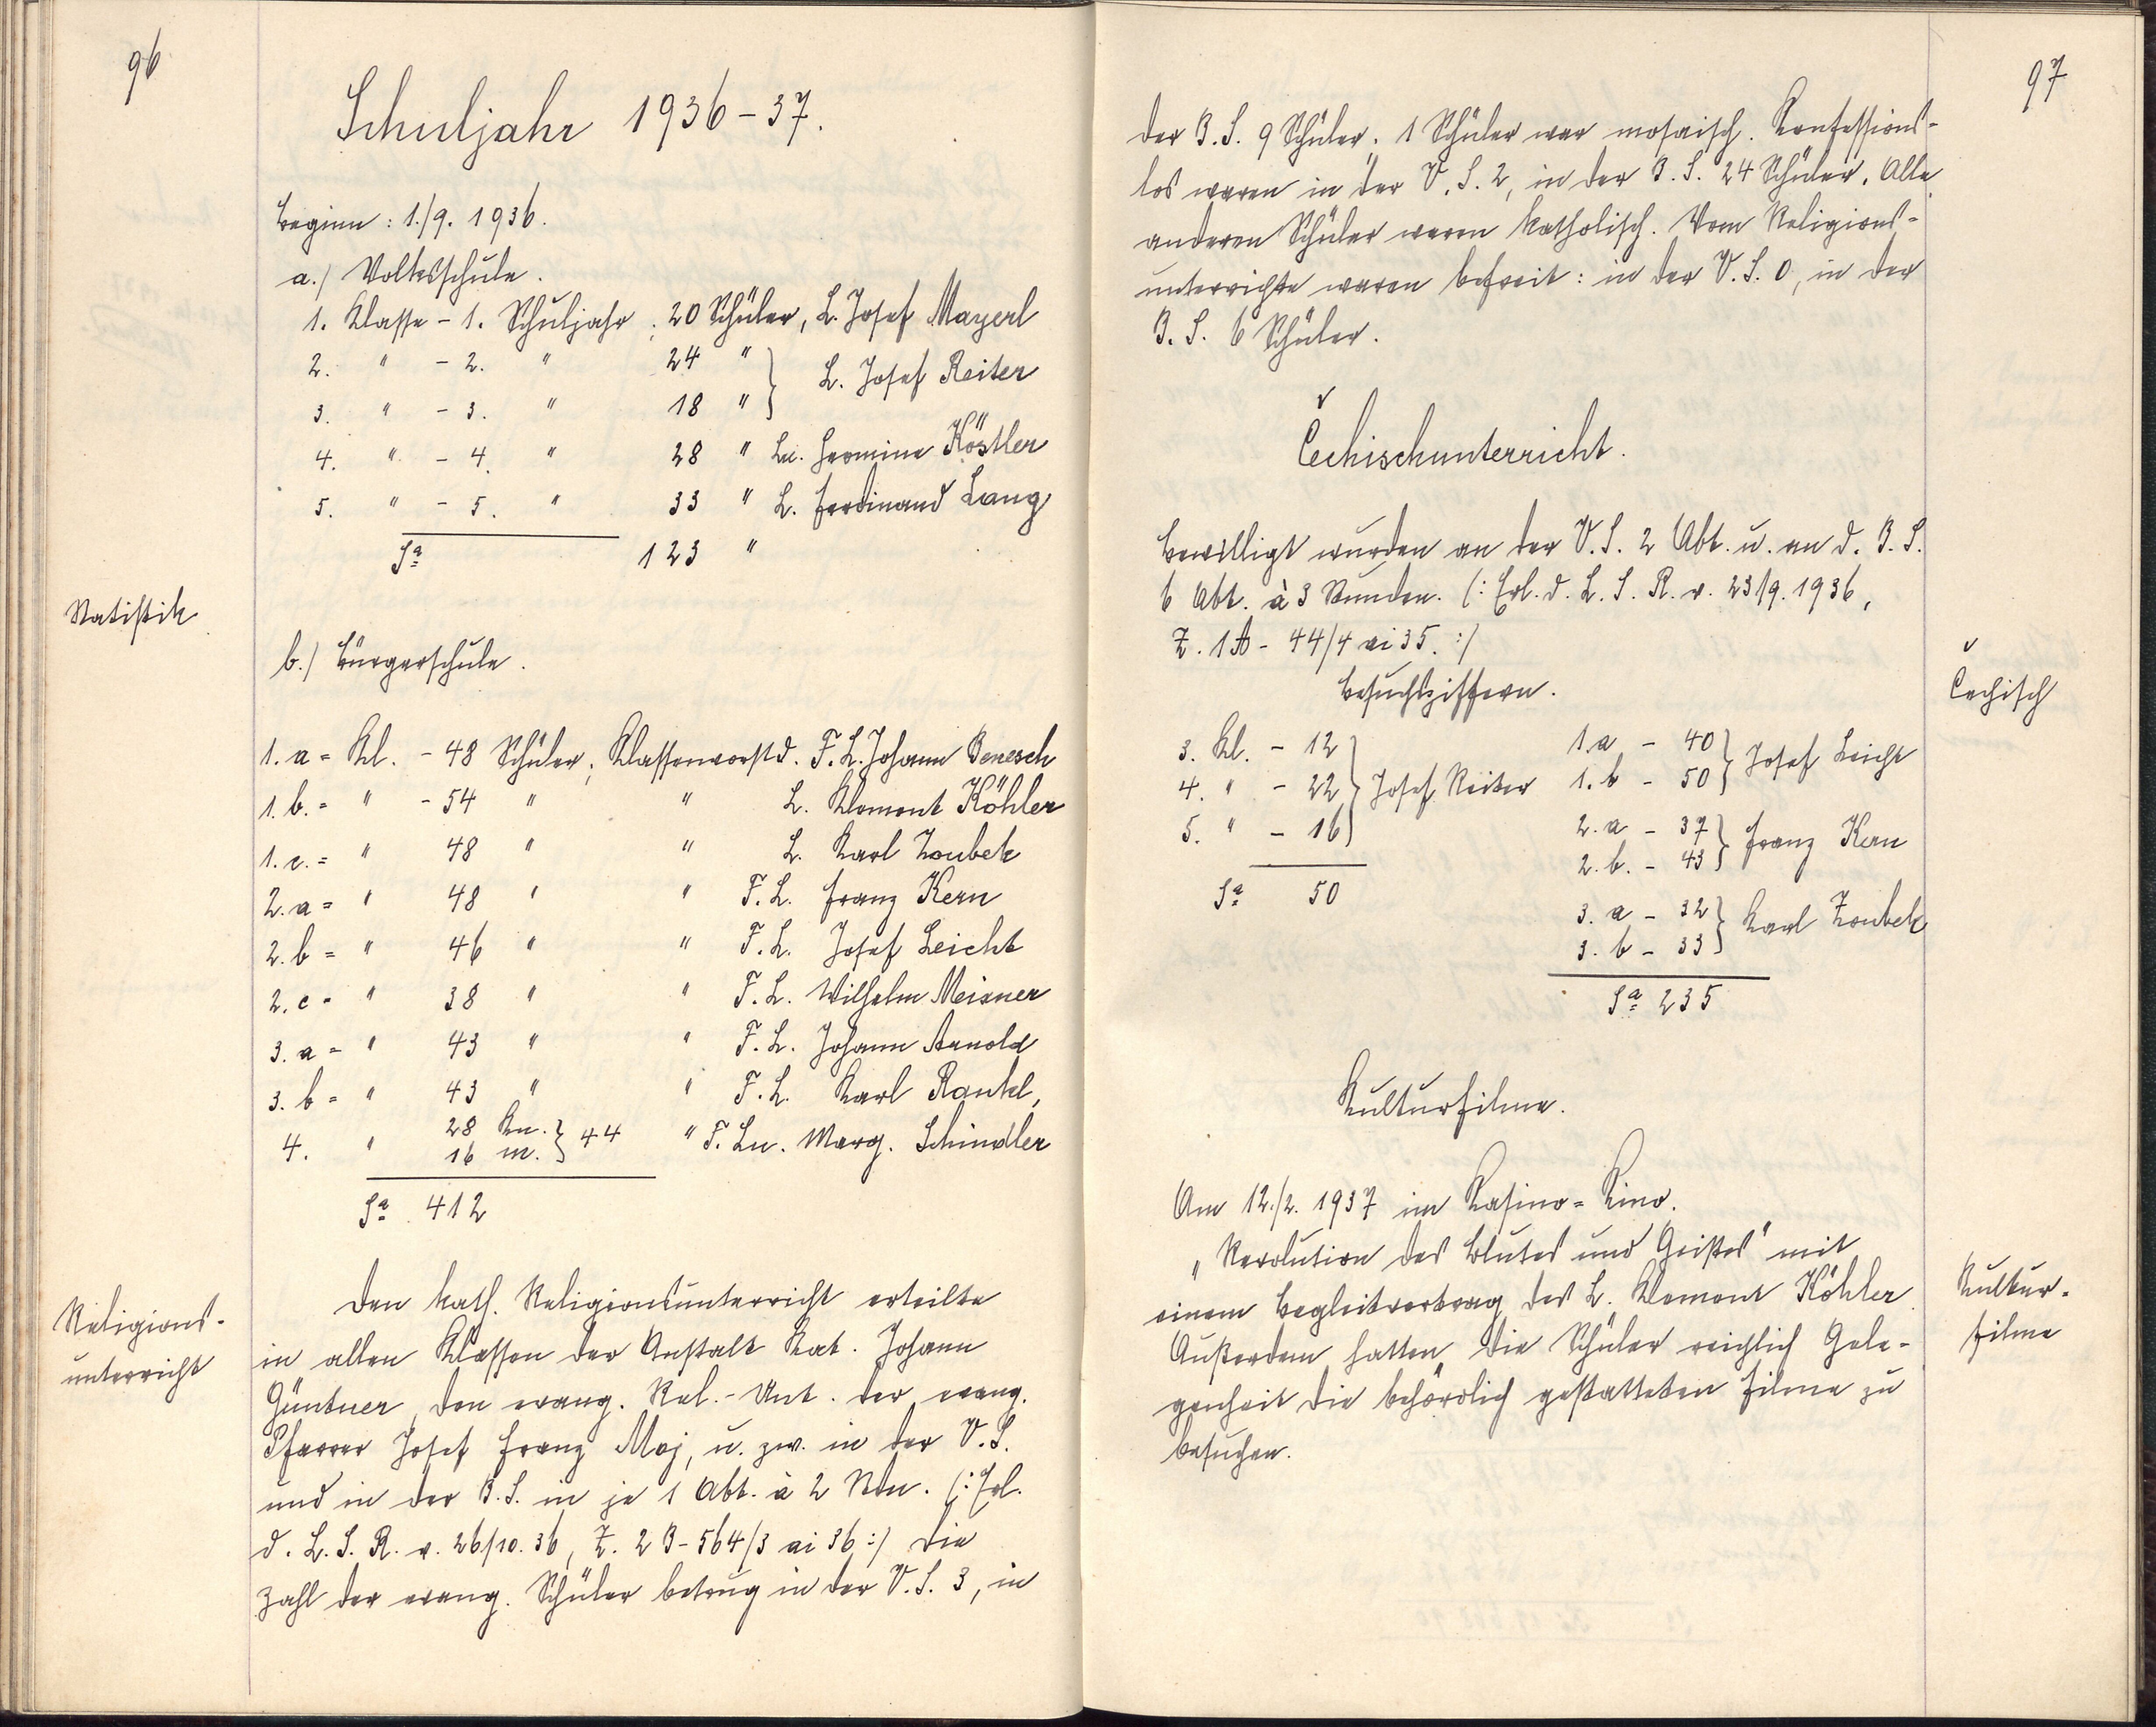 96
Schuljahr 1936-37.
Beginn: 1./9. 1936.
a./ Volksschule.
1. Klasse - 1. Schuljahr: 20 Schüler, L. Josef Mayerl
2. " - 2. " 24 " } L. Josef Reiter
3. " - 3. " 18 " }
4. " - 4. " 28 " Ln. Hermine Köstler
5. " - 5. " 33 " L. Ferdinand Lang
Sa 123 "
Statistik
b./ Bürgerschule.
1. a = Kl. - 48 Schüler; Klassenvorstd. F. L. Johann Benesch
1. b. = " - 54 " " L. Klement Köhler
1. c. = " 48 " " L. Karl Zoubek
2. a = " 48 " " F. L. Franz Kern
2. b = " 46 " " F. L. Josef Leicht
2. c = " 38 " " F. L. Wilhelm Meixner
3. a = " 43 " " F. L. Johann Arnold
3. b = " 43 " " F. L. Karl Rankl,
4. " 28 Kn. } 44 " F. Ln. Marg. Schindler
16 M. }
Sa. 412
Religions-
unterricht
Den kath. Religionsunterricht erteilte
in allen Klassen der Anstalt Kat. Johann
Güntner, den evang. Rel.-Unt. der evang.
Pfarrer Josef Franz Moj, u. zw. in der V. S.
und in der B. S. in je 1 Abt. à 2 Stdn. (: Erl.
d. L. S. R. v. 26/10. 36, Z. 2 B - 564/3 ai 36 :) Die
Zahl der evang. Schüler betrug in der V. S. 3, in
97
der B. S. 9 Schüler. 1 Schüler war mosaisch. Konfessions-
los waren in der V. S. 2, in der B. S. 24 Schüler. Alle
anderen Schüler waren katholisch. Vom Religions-
unterrichte waren befreit: in der V. S. 0, in der
B. S. 6 Schüler.
Čechischunterricht.
Bewilligt wurden an der V. S. 2 Abt. u. an d. B. S.
6 Abt. à 3 Stunden. (: Erl. d. L. S. R. v. 23/9. 1936,
Z. 1 A - 44/4 ai 35. :)
Čechisch
Besuchsziffern.
3. Kl. - 12 } 1. a - 40 } Josef Leicht
4. " - 22 } Josef Reiter 1. b - 50 }
5. " - 16 } 2. a - 37 } Franz Kern
2. b. - 43 }
Sa 50 3. a - 32 } Karl Zoubek
3. b - 33 }
Sa 235
Kulturfilme.
Am 12./2. 1937 im Kasino = Kino.
"Revolution des Blutes und Geistes" mit
einem Begleitvortrag des L. Klement Köhler.
Außerdem hatten die Schüler reichlich Gele-
genheit die behördlich gestatteten Filme zu
besuchen.
Kultur-
filme